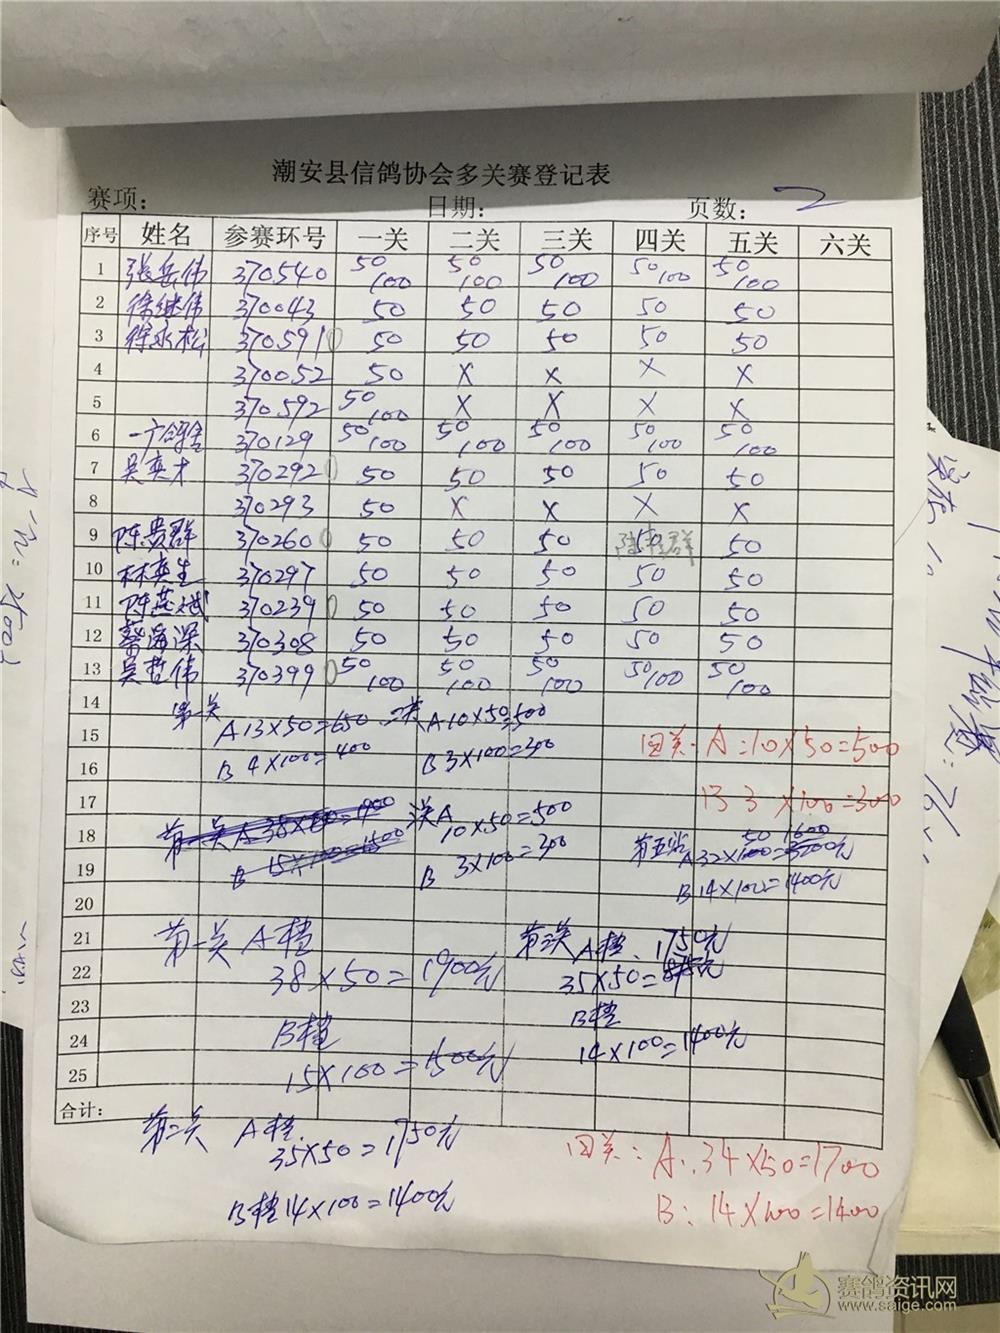 潮安县信鸽协会多关赛登记表
赛项: 日期: 页数: 2
序号 姓名 参赛环号 一关 二关 三关 四关 五关 六关
1 张岳伟 370540 50 100 50 100 50 100 50 100 50 100
2 徐继伟 370043 50 50 50 50 50
3 徐永松 370591 50 50 50 50 50
4 370052 50 X X X X
5 370592 50 100 X X X X
6 370129 50 100 50 100 50 100 50 100 50 100
7 吴奕才 370292 50 50 50 50 50
8 370293 50 X X X X
9 陈贵群 370260 50 50 50 50 50
10 林奕生 370297 50 50 50 50 50
11 陈燕斌 370239 50 50 50 50 50
12 370308 50 50 50 50 50
13 吴哲伟 370399 50 100 50 100 50 100 50 100 50 100
14 第一关
15 A 13X50=650 二关 A 10X50=500 四关. A:10X50=500
16 B 4X100=400 B 3X100=300
17 B 3X100=300
18 第一关 A 38X50=1900 A 10X50=500 50 1600
19 B 15X100=1500 B 3X100=300 A 32X100=3200元
20 B 14X100=1400元
21 第一关 A档 A档. 1750元
22 38X50=1900元 35X50=
23 B档
24 B档 14X100=1400元
25 15X100=1500元
合计:
第二关 A档.
35X50=1750元
四关: A:.34X50=1700
B档14X100=1400元
B: 14X100=1400
赛鸽资讯网
www.saige.com